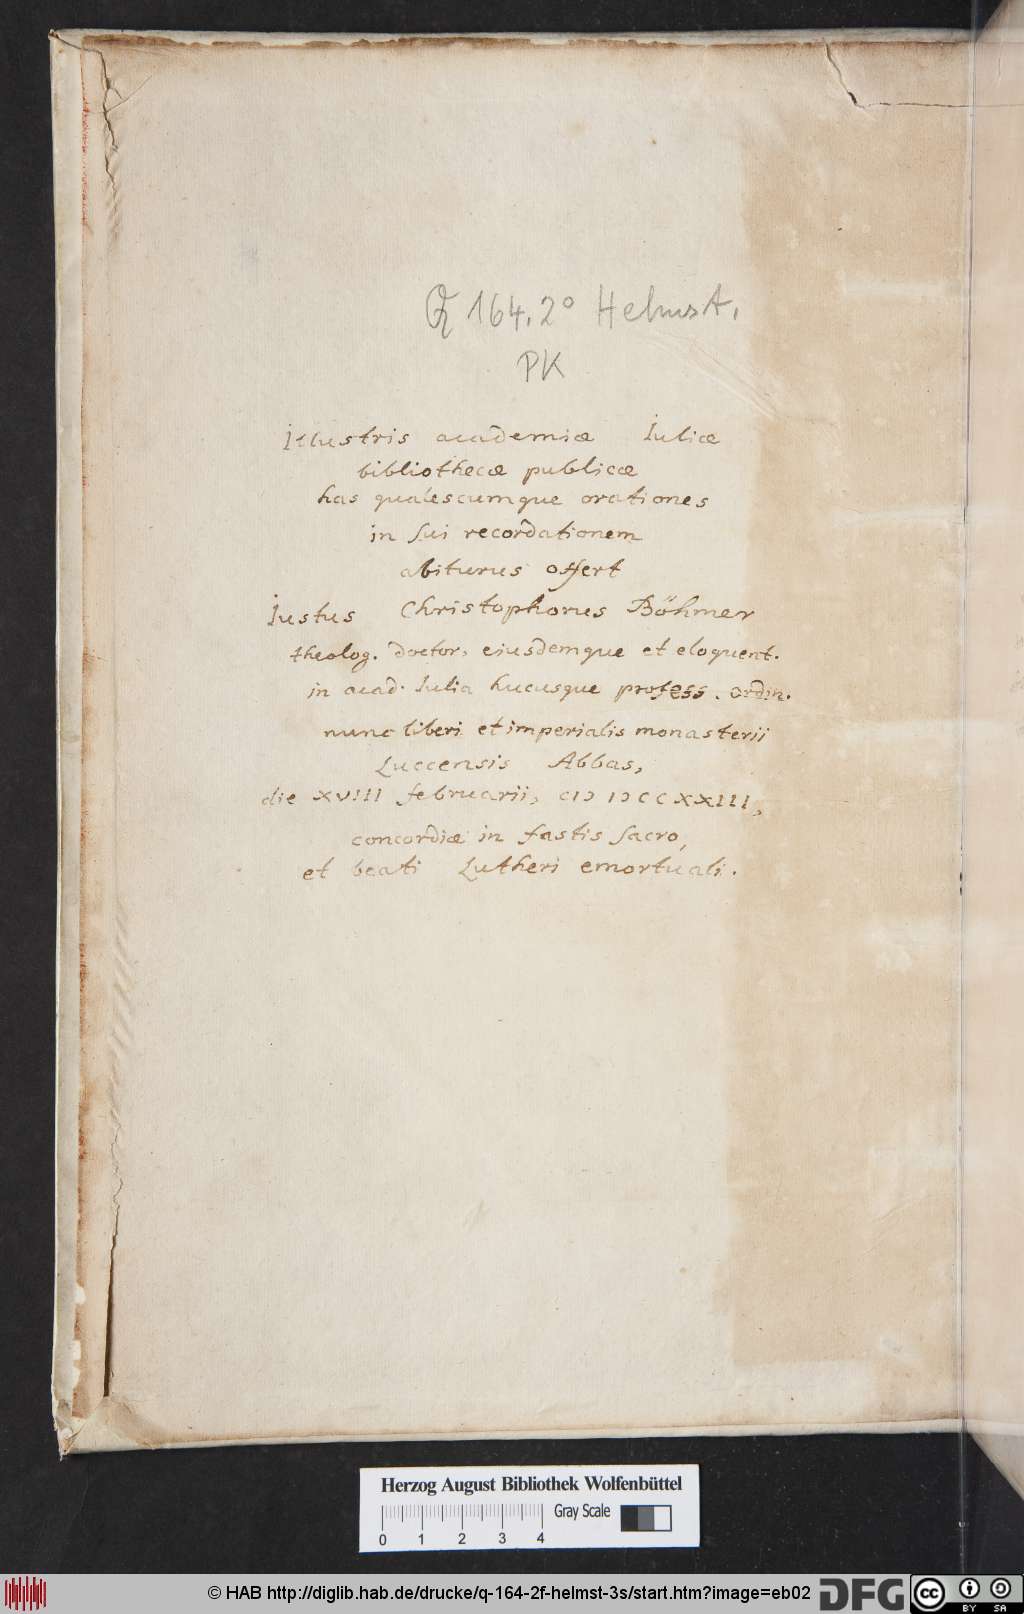 Q 164.2° Helmst.
PK
Illustris academiæ Iuliæ
bibliothecæ publicæ
has qualescumque orationes
in sui recordationem
abiturus offert
Iustus Christophorus Böhmer
theolog. doctor, eiusdemque et eloquent.
in acad. Iulia hucusque profess. ordin.
nunc liberi et imperialis monasterii
Luccensis Abbas,
die XVIII februarii, CIↃ IↃCCXXIII,
concordiæ in fastis sacro,
et beati Lutheri emortuali.
Herzog August Bibliothek Wolfenbüttel
Gray Scale
0 1 2 3 4
© HAB http://diglib.hab.de/drucke/q-164-2f-helmst-3s/start.htm?image=eb02 DFG cc BY SA